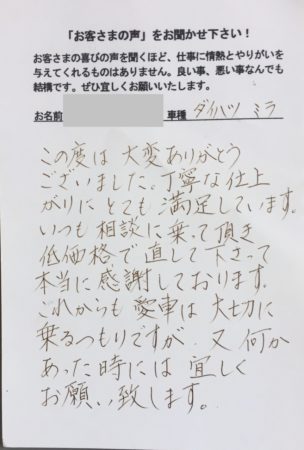 「お客さまの声」をお聞かせ下さい！
お客さまの喜びの声を聞くほど、仕事に情熱とやりがいを
与えてくれるものはありません。良い事、悪い事なんでも
結構です。ぜひ宜しくお願いいたします。
お名前 車種 ダイハツ ミラ
この度は 大変ありがとう
ございました。丁寧な仕上
がりに とても 満足しています。
いつも 相談に乗って頂き
低価格で 直して 下さって
本当に 感謝しております。
これからも 愛車は 大切に
乗るつもりですが 又 何か
あった時には 宜しく
お願い致します。